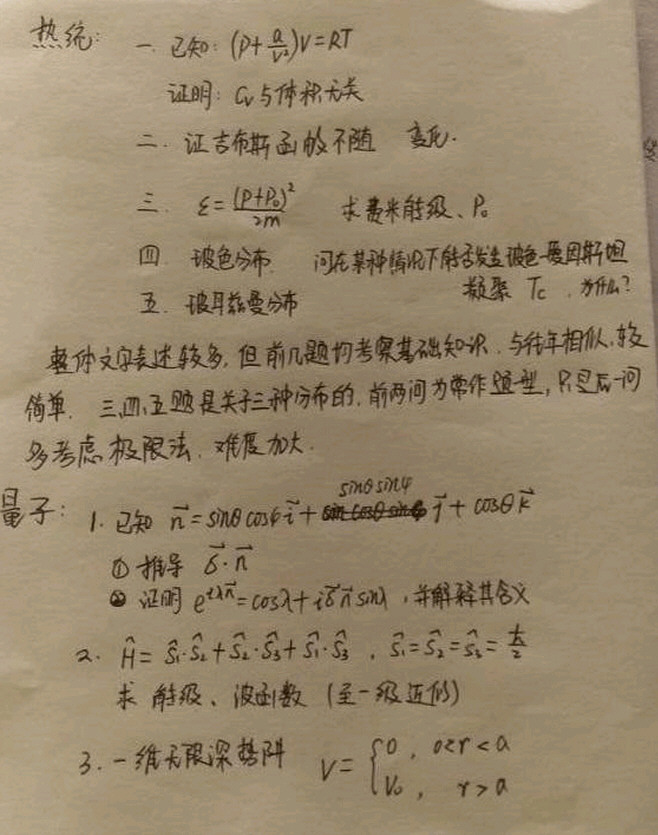 热统: 一. 已知: (P+a/V²)V=RT
证明: Cv与体积无关
二. 证吉布斯函数不随 变化.
三. ε=(P+P₀)²/2m 求费米能级、P₀
四. 玻色分布. 问在某种情况下能否发生玻色-爱因斯坦
凝聚 Tc. 为什么?
五. 玻耳兹曼分布
整体文字表述较多, 但前几题均考察基础知识. 与往年相似, 较
简单. 三、四、五题是关于三种分布的. 前两问为常作题型, 只是后一问
多考虑极限法. 难度加大.
量子: 1. 已知 n⃗=sinθcosφi⃗+sinθsinφj⃗+cosθk⃗
① 推导 σ⃗·n⃗
② 证明 e^{iλn⃗}=cosλ+iσ⃗n⃗sinλ, 并解释其含义
2. Ĥ=Ŝ₁·Ŝ₂+Ŝ₂·Ŝ₃+Ŝ₁·Ŝ₃, Ŝ₁=Ŝ₂=Ŝ₃=ħ/2
求 能级、波函数 (至一级近似)
3. 一维无限深势阱 V={0, 0<r<a
V₀, r>a